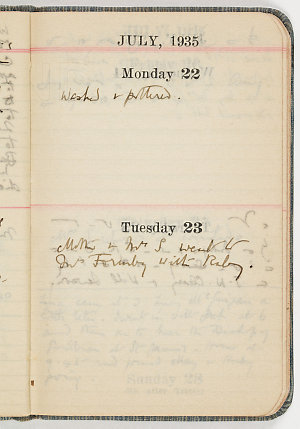 JULY, 1935
Monday 22
Washed & pottered.
Tuesday 23
Mother & Mrs S. went to
Mrs Formby with Ruby.